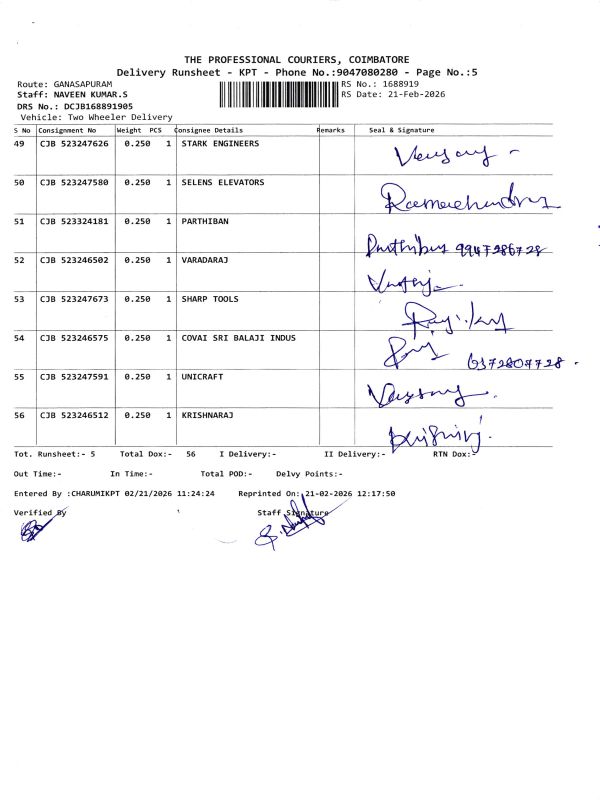 THE PROFESSIONAL COURIERS, COIMBATORE
Delivery Runsheet - KPT - Phone No.:9047080280 - Page No.:5
Route: GANASAPURAM
RS No.: 1688919
Staff: NAVEEN KUMAR.S
RS Date: 21-Feb-2026
DRS No.: DCJB168891905
Vehicle: Two Wheeler Delivery
S No Consignment No Weight PCS Consignee Details Remarks Seal & Signature
49 CJB 523247626 0.250 1 STARK ENGINEERS
50 CJB 523247580 0.250 1 SELENS ELEVATORS
Ramachandran
51 CJB 523324181 0.250 1 PARTHIBAN
Parthiban 9947286728
52 CJB 523246502 0.250 1 VARADARAJ
53 CJB 523247673 0.250 1 SHARP TOOLS
54 CJB 523246575 0.250 1 COVAI SRI BALAJI INDUS
55 CJB 523247591 0.250 1 UNICRAFT
56 CJB 523246512 0.250 1 KRISHNARAJ
Tot. Runsheet:- 5 Total Dox:- 56 I Delivery:- II Delivery:- RTN Dox:-
Out Time:- In Time:- Total POD:- Delvy Points:-
Entered By :CHARUMIKPT 02/21/2026 11:24:24 Reprinted On: 21-02-2026 12:17:50
Verified By Staff Signature